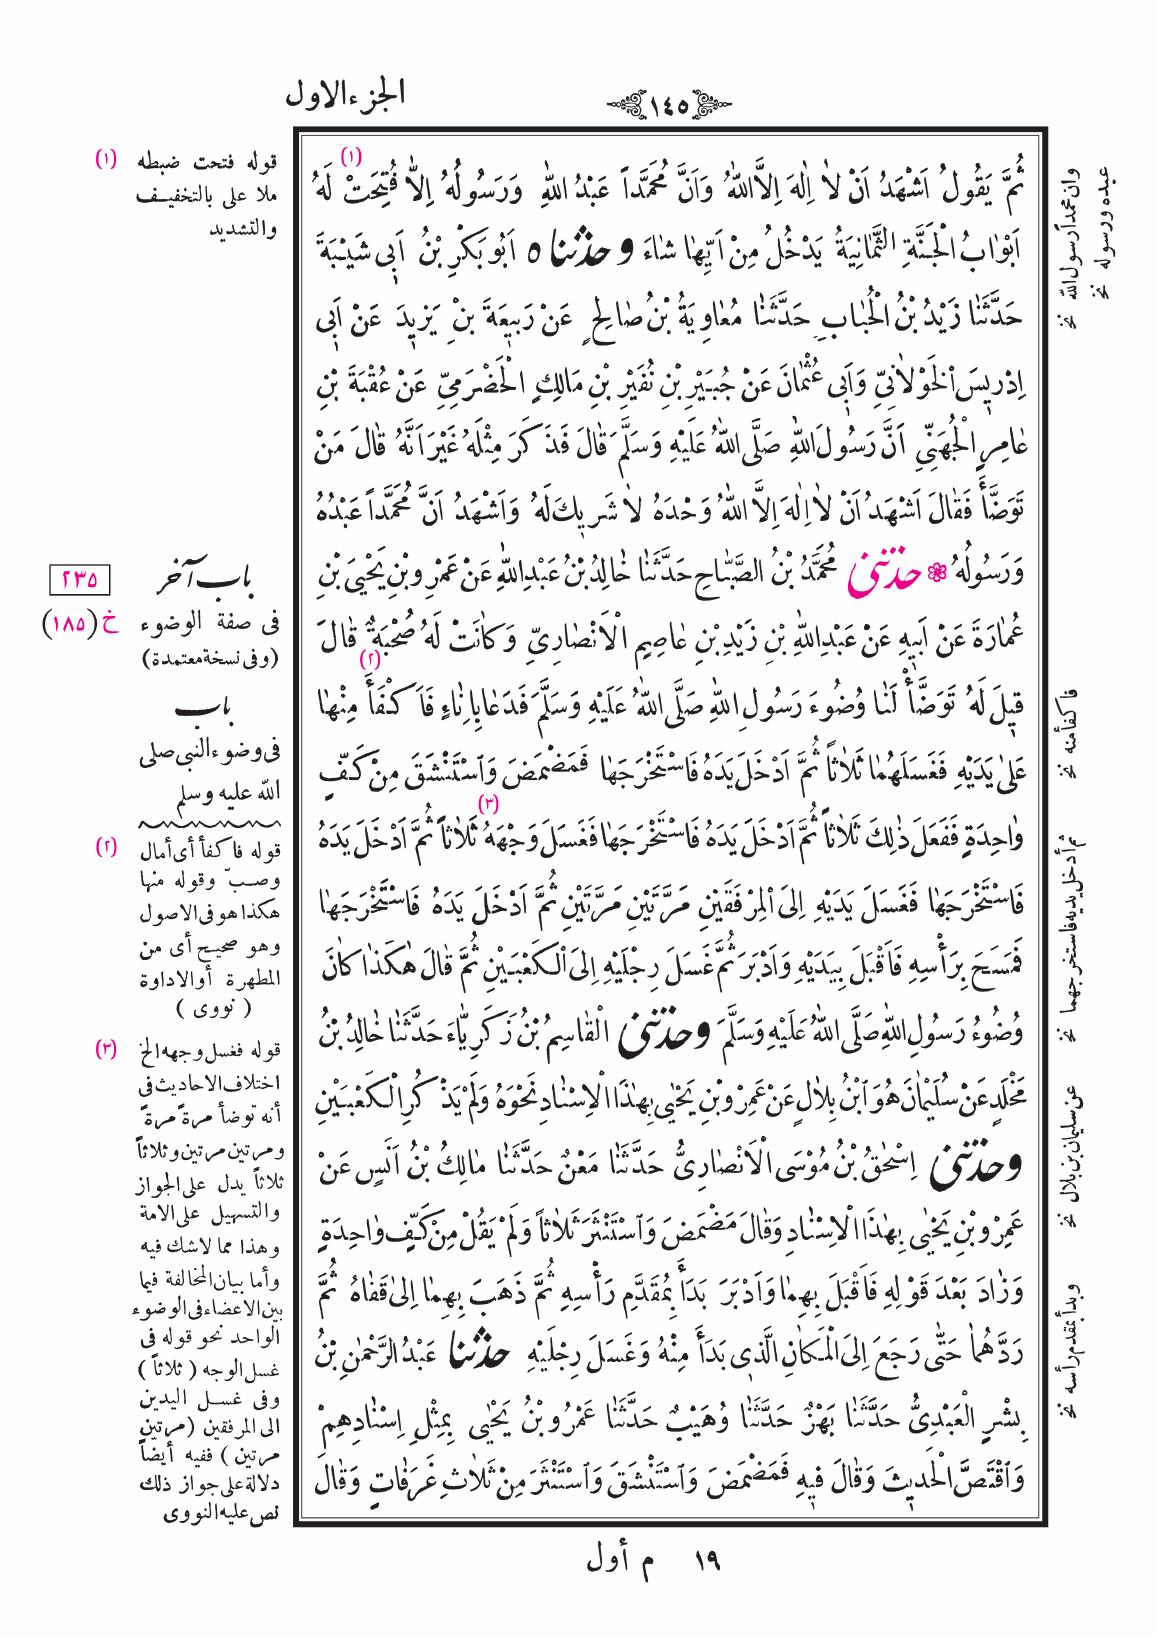 ١٤٥
الجزء الاول
ثُمَّ يَقُولُ اَشْهَدُ اَنْ لاٰ اِلٰهَ اِلاَّاللّٰهُ وَاَنَّ مُحَمَّداً عَبْدُ اللّٰهِ وَرَسُولُهُ اِلاّٰ فُتِحَتْ (١) لَهُ
اَبْوٰابُ الْجَنَّةِ الثَّمَانِيَةُ يَدْخُلُ مِنْ اَيِّهٰا شٰاءَ وحدثنا ٥ اَبُو بَكْرِ بْنُ اَبِى شَيْبَةَ
حَدَّثَنٰا زَيْدُ بْنُ الْحُبٰابِ حَدَّثَنٰا مُعٰاوِيَةُ بْنُ صٰالِحٍ عَنْ رَبِيعَةَ بْنِ يَزِيدَ عَنْ اَبِى
اِدْرِيسَ الْخَوْلاٰنِىِّ وَاَبِى عُثْمٰانَ عَنْ جُبَيْرِ بْنِ نُفَيْرِ بْنِ مَالِكٍ الْحَضْرَمِىِّ عَنْ عُقْبَةَ بْنِ
عٰامِرٍ الْجُهَنِىِّ اَنَّ رَسُولَ اللّٰهِ صَلَّى اللّٰهُ عَلَيْهِ وَسَلَّمَ قٰالَ فَذَكَرَ مِثْلَهُ غَيْرَ اَنَّهُ قٰالَ مَنْ
تَوَضَّأَ فَقٰالَ اَشْهَدُ اَنْ لاٰ اِلٰهَ اِلاَّ اللّٰهُ وَحْدَهُ لاٰ شَرِيكَ لَهُ وَاَشْهَدُ اَنَّ مُحَمَّداً عَبْدُهُ
وَرَسُولُهُ ❁ حدثنى مُحَمَّدُ بْنُ الصَّبّٰاحِ حَدَّثَنٰا خٰالِدُ بْنُ عَبْدِ اللّٰهِ عَنْ عَمْرِو بْنِ يَحْيَى بْنِ
عُمٰارَةَ عَنْ اَبِيهِ عَنْ عَبْدِ اللّٰهِ بْنِ زَيْدِ بْنِ عٰاصِمٍ الْاَنْصٰارِىِّ وَكٰانَتْ لَهُ صُحْبَةٌ قٰالَ
قِيلَ لَهُ تَوَضَّأْ لَنٰا وُضُوءَ رَسُولِ اللّٰهِ صَلَّى اللّٰهُ عَلَيْهِ وَسَلَّمَ فَدَعٰا بِاِنٰاءٍ فَاَكْفَأَ (٢) مِنْهٰا
عَلىٰ يَدَيْهِ فَغَسَلَهُمٰا ثَلاٰثاً ثُمَّ اَدْخَلَ يَدَهُ فَاسْتَخْرَجَهٰا فَمَضْمَضَ وَاسْتَنْشَقَ مِنْ كَفٍّ
وٰاحِدَةٍ فَفَعَلَ ذٰلِكَ ثَلاٰثاً ثُمَّ اَدْخَلَ يَدَهُ فَاسْتَخْرَجَهٰا فَغَسَلَ وَجْهَهُ (٣) ثَلاٰثاً ثُمَّ اَدْخَلَ يَدَهُ
فَاسْتَخْرَجَهٰا فَغَسَلَ يَدَيْهِ اِلَى الْمِرْفَقَيْنِ مَرَّتَيْنِ مَرَّتَيْنِ ثُمَّ اَدْخَلَ يَدَهُ فَاسْتَخْرَجَهٰا
فَمَسَحَ بِرَأْسِهِ فَاَقْبَلَ بِيَدَيْهِ وَاَدْبَرَ ثُمَّ غَسَلَ رِجْلَيْهِ اِلَى الْكَعْبَيْنِ ثُمَّ قٰالَ هٰكَذٰا كٰانَ
وُضُوءُ رَسُولِ اللّٰهِ صَلَّى اللّٰهُ عَلَيْهِ وَسَلَّمَ وحدثنى الْقٰاسِمُ بْنُ زَكَرِيّٰاءَ حَدَّثَنٰا خٰالِدُ بْنُ
مَخْلَدٍ عَنْ سُلَيْمٰانَ هُوَ ابْنُ بِلاٰلٍ عَنْ عَمْرِو بْنِ يَحْيٰى بِهٰذَا الْاِسْنٰادِ نَحْوَهُ وَلَمْ يَذْكُرِ الْكَعْبَيْنِ
وحدثنى اِسْحٰقُ بْنُ مُوْسَى الْاَنْصٰارِىُّ حَدَّثَنٰا مَعْنٌ حَدَّثَنٰا مٰالِكُ بْنُ اَنَسٍ عَنْ
عَمْرِو بْنِ يَحْيٰى بِهٰذَا الْاِسْنٰادِ وَقٰالَ مَضْمَضَ وَاسْتَنْثَرَ ثَلاٰثاً وَلَمْ يَقُلْ مِنْ كَفٍّ وٰاحِدَةٍ
وَزٰادَ بَعْدَ قَوْلِهِ فَاَقْبَلَ بِهِمٰا وَاَدْبَرَ بَدَأَ بِمُقَدَّمِ رَأْسِهِ ثُمَّ ذَهَبَ بِهِمٰا اِلىٰ قَفٰاهُ ثُمَّ
رَدَّهُمٰا حَتّٰى رَجَعَ اِلَى الْمَكٰانِ الَّذِى بَدَأَ مِنْهُ وَغَسَلَ رِجْلَيْهِ حدثنا عَبْدُ الرَّحْمٰنِ بْنُ
بِشْرٍ الْعَبْدِىُّ حَدَّثَنٰا بَهْزٌ حَدَّثَنٰا وُهَيْبٌ حَدَّثَنٰا عَمْرُو بْنُ يَحْيٰى بِمِثْلِ اِسْنٰادِهِمْ
وَاقْتَصَّ الْحَدِيثَ وَقٰالَ فِيهِ فَمَضْمَضَ وَاسْتَنْشَقَ وَاسْتَنْثَرَ مِنْ ثَلاٰثِ غَرَفٰاتٍ وَقٰالَ
وان محمداً رسول اللّٰه نخ
عبده ورسوله نخ
فاكفأ منه نخ
ثم أدخل يديه فاستخرجهما نخ
عن سليمان بن بلال نخ
وبدأ بمقدم رأسه نخ
(١) قوله فتحت ضبطه
ملا على بالتخفيف
والتشديد
٢٣٥
باب آخر
خ (١٨٥)
فى صفة الوضوء
(وفى نسخة معتمدة)
باب
فى وضوء النبى صلى
اللّٰه عليه وسلم
(٢) قوله فاكفأ أى أمال
وصبّ وقوله منها
هكذا هو فى الاصول
وهو صحيح أى من
المطهرة أو الاداوة
( نووى )
(٣) قوله فغسل وجهه الخ
اختلاف الاحاديث فى
أنه توضأ مرةً مرةً
ومرتين مرتين وثلاثاً
ثلاثاً يدل على الجواز
والتسهيل على الامة
وهذا مما لاشك فيه
وأما بيان المخالفة فيما
بين الاعضاء فى الوضوء
الواحد نحو قوله فى
غسل الوجه ( ثلاثاً )
وفى غسل اليدين
الى المرفقين (مرتين
مرتين ) ففيه أيضاً
دلالة على جواز ذلك
نص عليه النووى
١٩ م أول